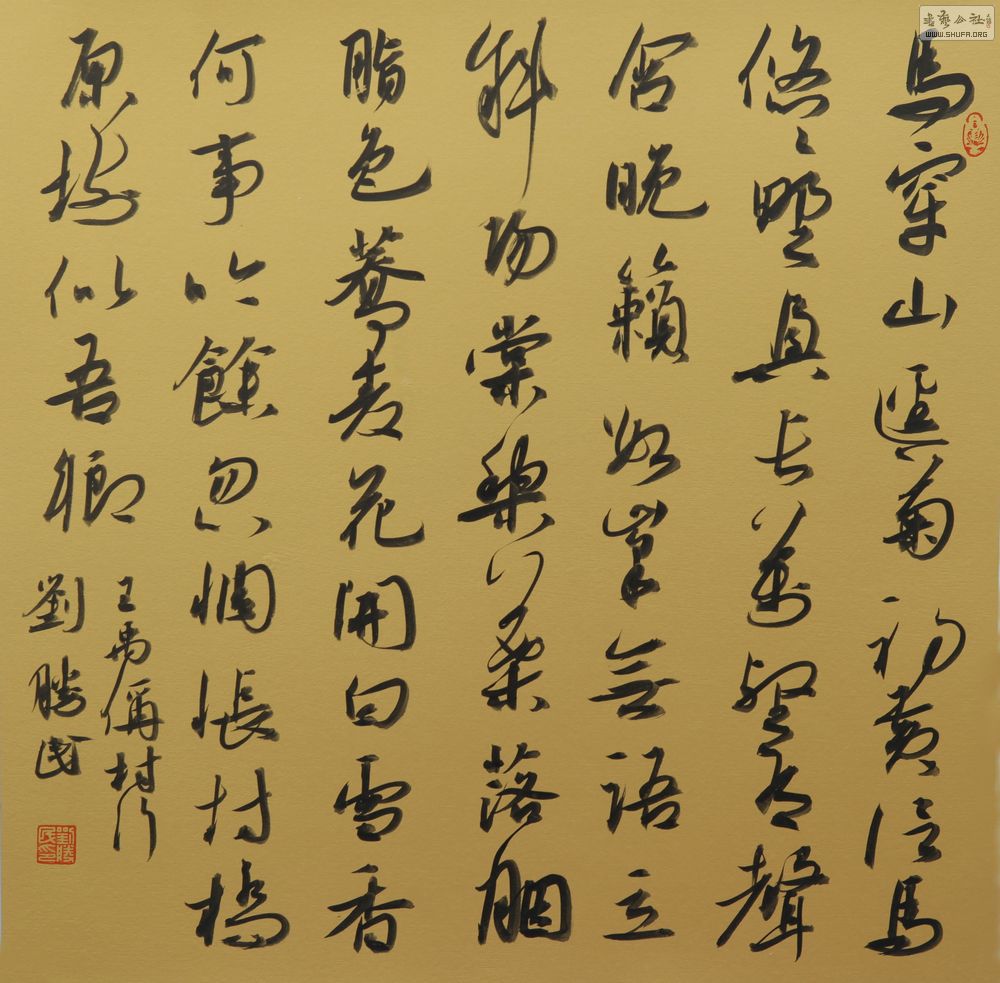 馬穿山徑菊初黃信馬
悠〻野興長萬壑有聲
含晚籟數峯無語立
斜陽棠梨葉落胭
脂色蕎麦花開白雪香
何事吟餘忽惆悵村橋
原樹似吾鄉
王禹偁村行
劉勝民
劉勝民印
書藝公社
WWW.SHUFA.ORG